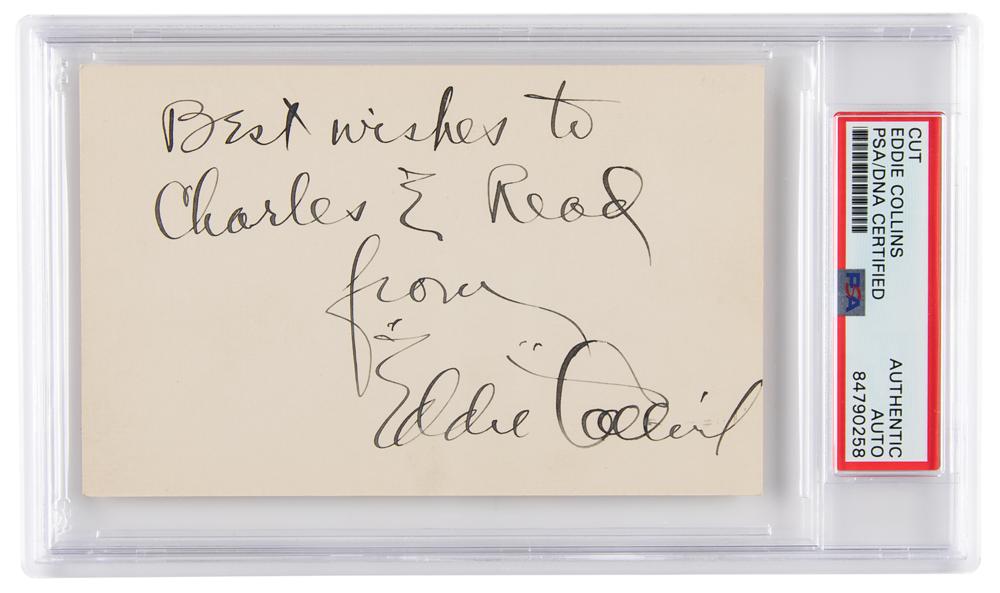 Best wishes to
Charles E Read
from
"Eddie" Collins
CUT
EDDIE COLLINS
PSA/DNA CERTIFIED
PSA
AUTHENTIC
AUTO
84790258